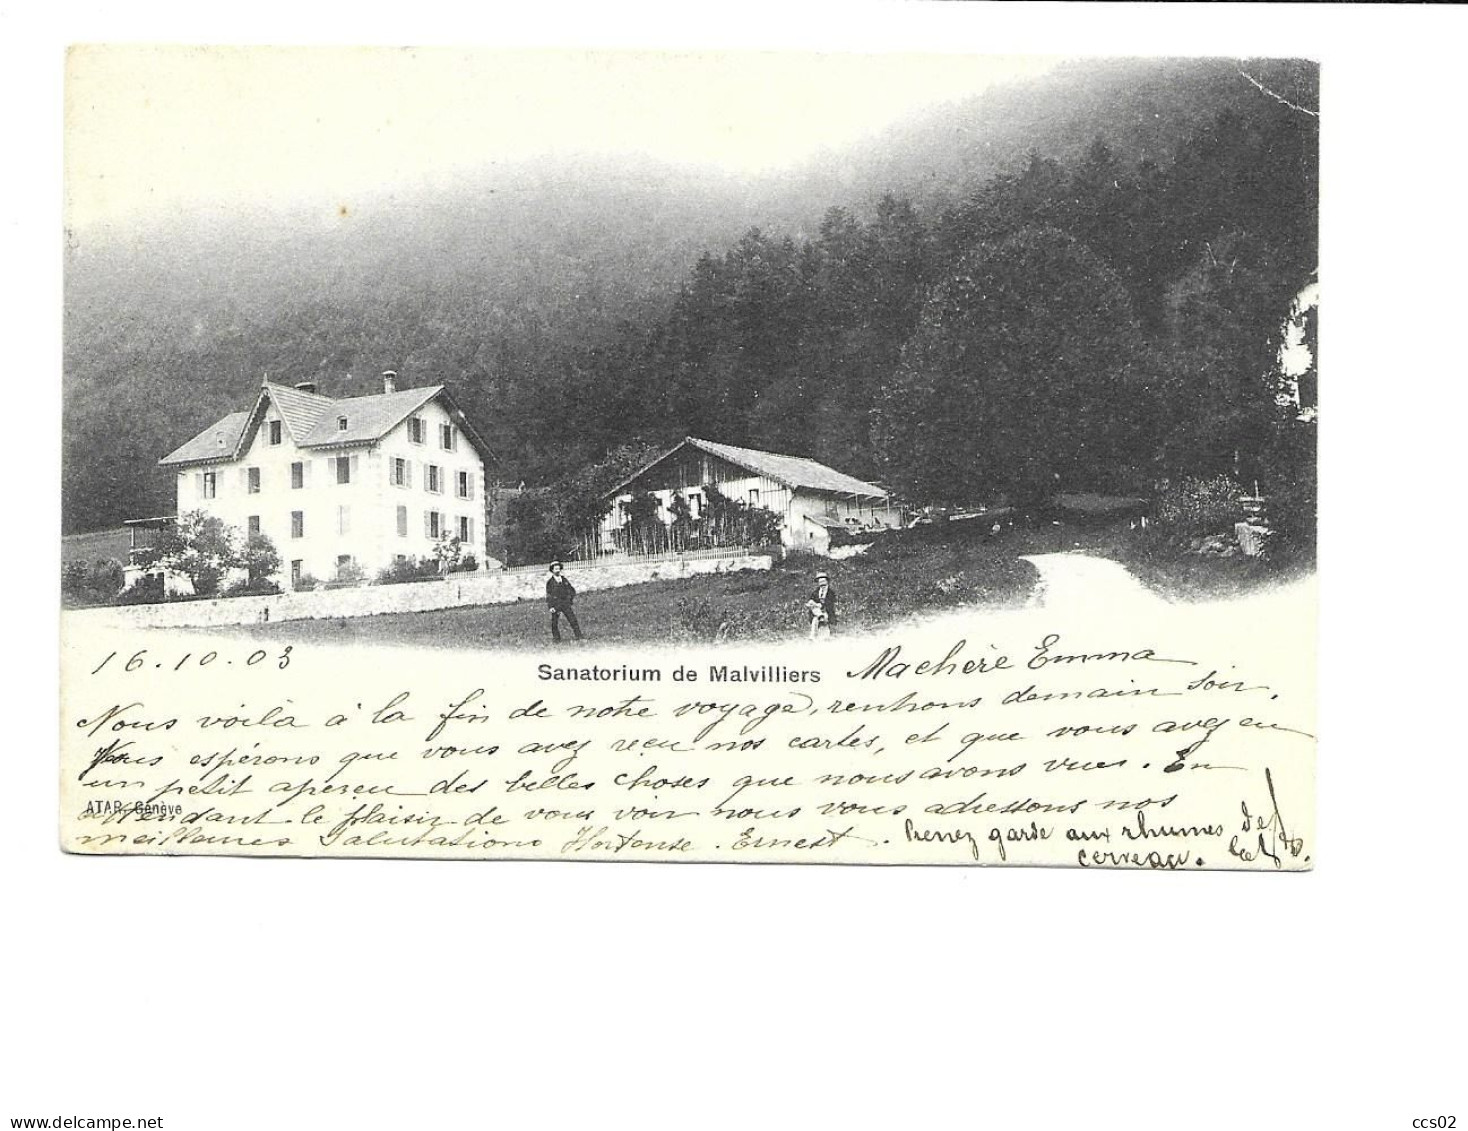 16.10.03
Sanatorium de Malvilliers
Machère Emma
Nous voilà à la fin de notre voyage, rentrons demain soir.
Vous espérons que vous avez reçu nos cartes, et que vous avez eu
un petit aperçu des belles choses que nous avons vues. En
ATAR. Genève
attendant le plaisir de vous voir nous vous adressons nos
meilleures Salutations Hortense. Ernest.
Prenez garde aux rhumes de
cerveau.
www.delcampe.net
ccs02